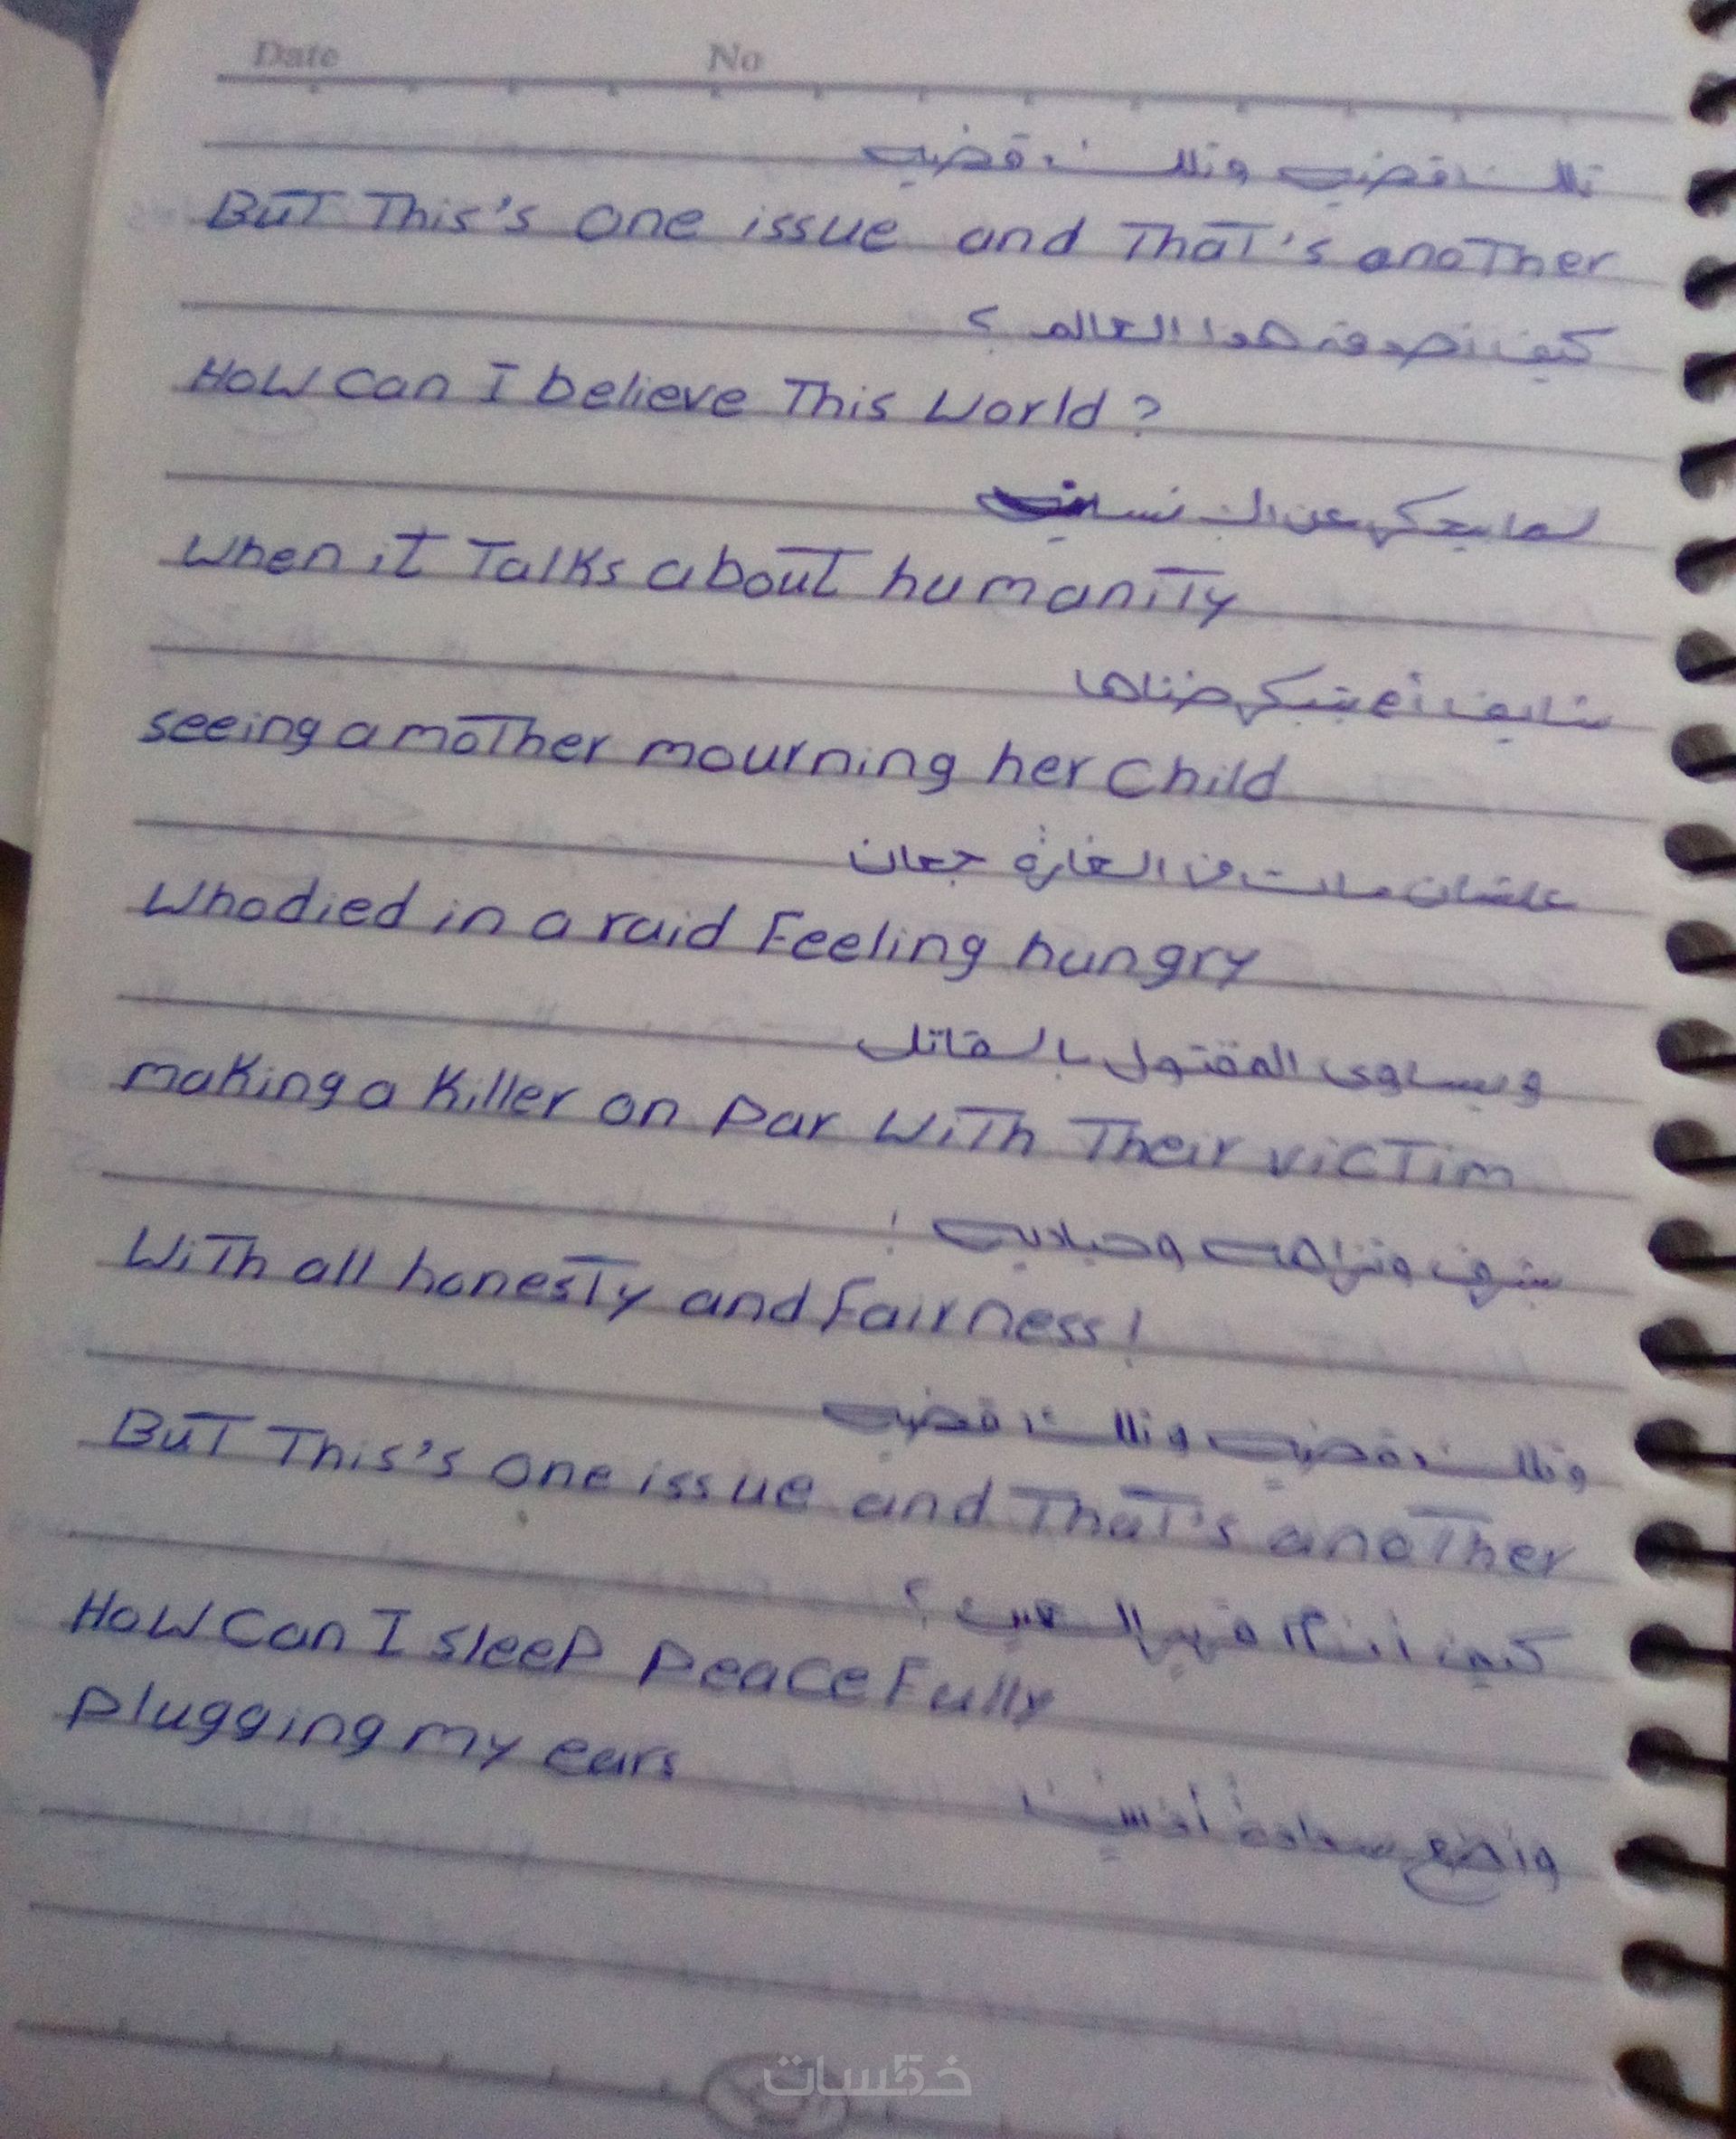 Date No
تلك قضية وتلك قضية
BuT This's one issue and ThaT's anoTher
كيف نصدق هذا العالم ؟
How can I believe This World ?
لما يحكي عن الإنسانية
When iT Talks abouT humaniTy
شايف أم بتبكي ضناها
seeing a moTher mourning her child
علشان مات في الغارة جعان
Who died in a raid Feeling hungry
ويساوى المقتول بالقاتل
making a Killer on par WiTh Their vicTim
بشرف ونزاهة وحيادية !
WiTh all honesTy and Fairness !
وتلك قضية وتلك قضية
BuT This's one issue and ThaT's anoTher
كيف أنام قرير العين ؟
How Can I sleep peaceFully
plugging my ears
وأضع سدادة أذنين
خمسات